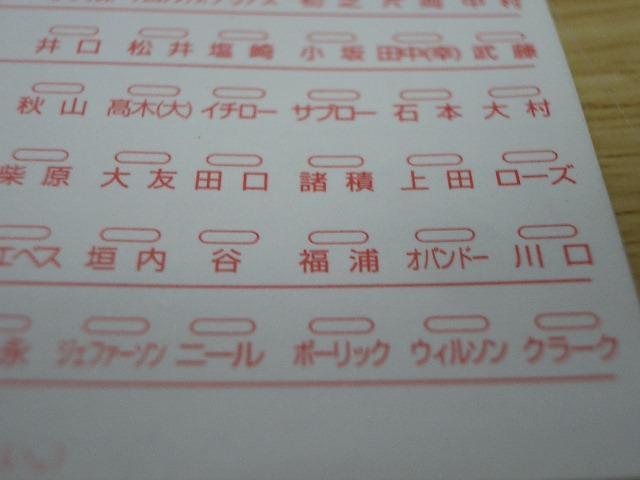 井口 松井 塩崎 小坂 田中(幸) 武藤
秋山 高木(大) イチロー サブロー 石本 大村
柴原 大友 田口 諸積 上田 ローズ
エバス 垣内 谷 福浦 オバンドー 川口
永 ジェファーソン ニール ボーリック ウィルソン クラーク